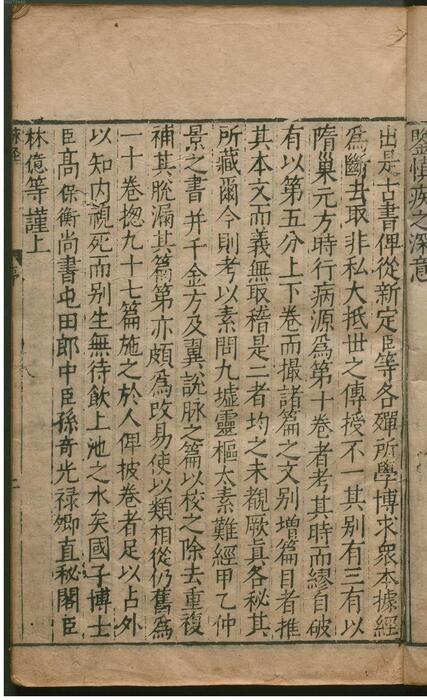 鑒慎疾之深意
出是古書俾從新定臣等各殫所學博求衆本據經
為斷去取非私大抵世之傳授不一其别有三有以
隋巢元方時行病源為第十卷者考其時而繆自破
有以第五分上下卷而撮諸篇之文别增篇目者推
其本文而義無取稽是二者均之未覩厥真各秘其
所藏爾今則考以素問九墟靈樞太素難經甲乙仲
景之書并千金方及翼說脉之篇以校之除去重複
補其脫漏其篇第亦頗為改易使以類相從仍舊為
一十卷揔九十七篇施之於人俾披卷者足以占外
以知内視死而别生無待飲上池之水矣國子博士
臣高保衡尚書屯田郎中臣孫奇光禄卿直秘閣臣
林億等謹上
脉經
序